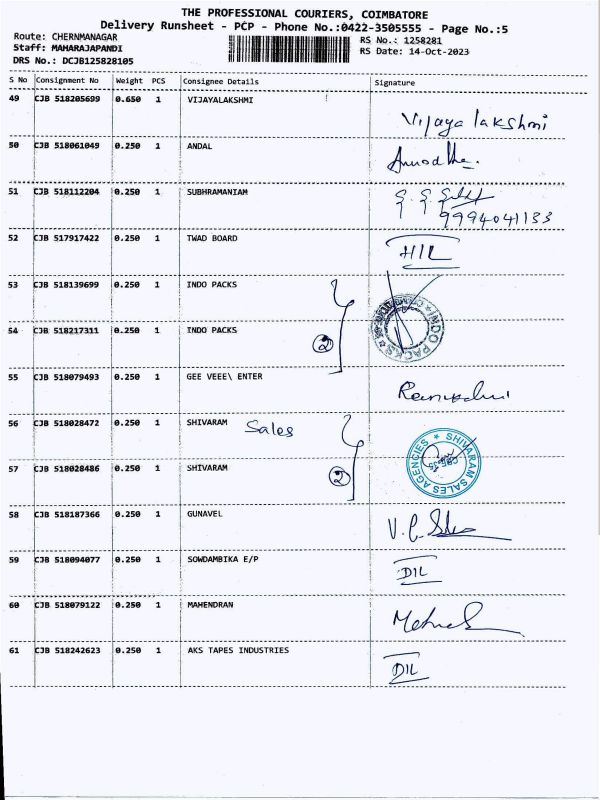 THE PROFESSIONAL COURIERS, COIMBATORE
Delivery Runsheet - PCP - Phone No.:0422-3505555 - Page No.:5
Route: CHERNMANAGAR
RS No.: 1258281
Staff: MAHARAJAPANDI
RS Date: 14-Oct-2023
DRS No.: DCJB125828105
S No Consignment No Weight PCS Consignee Details Signature
49 CJB 518205699 0.650 1 VIJAYALAKSHMI Vijaya lakshmi
50 CJB 518061049 0.250 1 ANDAL
51 CJB 518112204 0.250 1 SUBHRAMANIAM
9994041133
52 CJB 517917422 0.250 1 TWAD BOARD HIL
53 CJB 518139699 0.250 1 INDO PACKS
INDO PACKS
54 CJB 518217311 0.250 1 INDO PACKS 2
55 CJB 518079493 0.250 1 GEE VEEE\ ENTER
56 CJB 518028472 0.250 1 SHIVARAM Sales
SHIVARAM SALES AGENCIES
57 CJB 518028486 0.250 1 SHIVARAM 2
58 CJB 518187366 0.250 1 GUNAVEL
59 CJB 518094077 0.250 1 SOWDAMBIKA E/P DIL
60 CJB 518079122 0.250 1 MAHENDRAN
61 CJB 518242623 0.250 1 AKS TAPES INDUSTRIES DIL